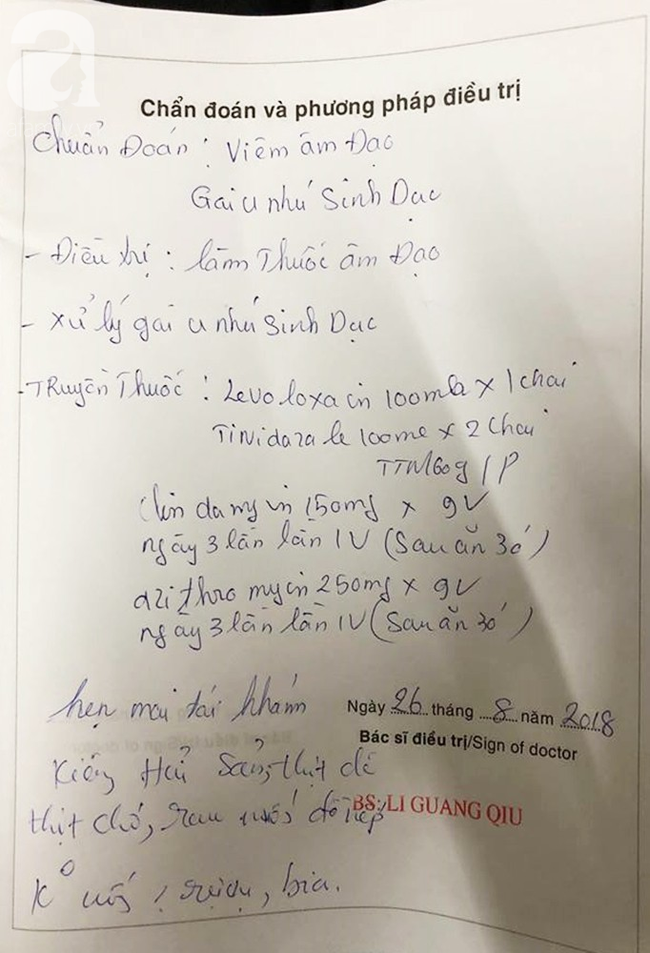 a
Chẩn đoán và phương pháp điều trị
Chuẩn Đoán : Viêm âm Đạo
Gai u nhú Sinh Dục
- Điều trị : Làm Thuốc âm Đạo
- Xử lý gai u nhú Sinh Dục
- TRuyền Thuốc : Levo loxacin 100ml x 1 chai
Tinidazale 100ml x 2 chai
TTM 60g / P
Clin damyin 150mg x 9V
ngày 3 lần lần 1V (Sau ăn 30')
azithromycin 250mg x 9V
ngày 3 lần lần 1V (Sau ăn 30')
hẹn mai tái khám
Ngày 26 tháng 8 năm 2018
Bác sĩ điều trị/Sign of doctor
Kiêng Hải Sản, thịt dê
thịt chó, rau muống đồ nếp
BS: LI GUANG QIU
K uống rượu, bia.